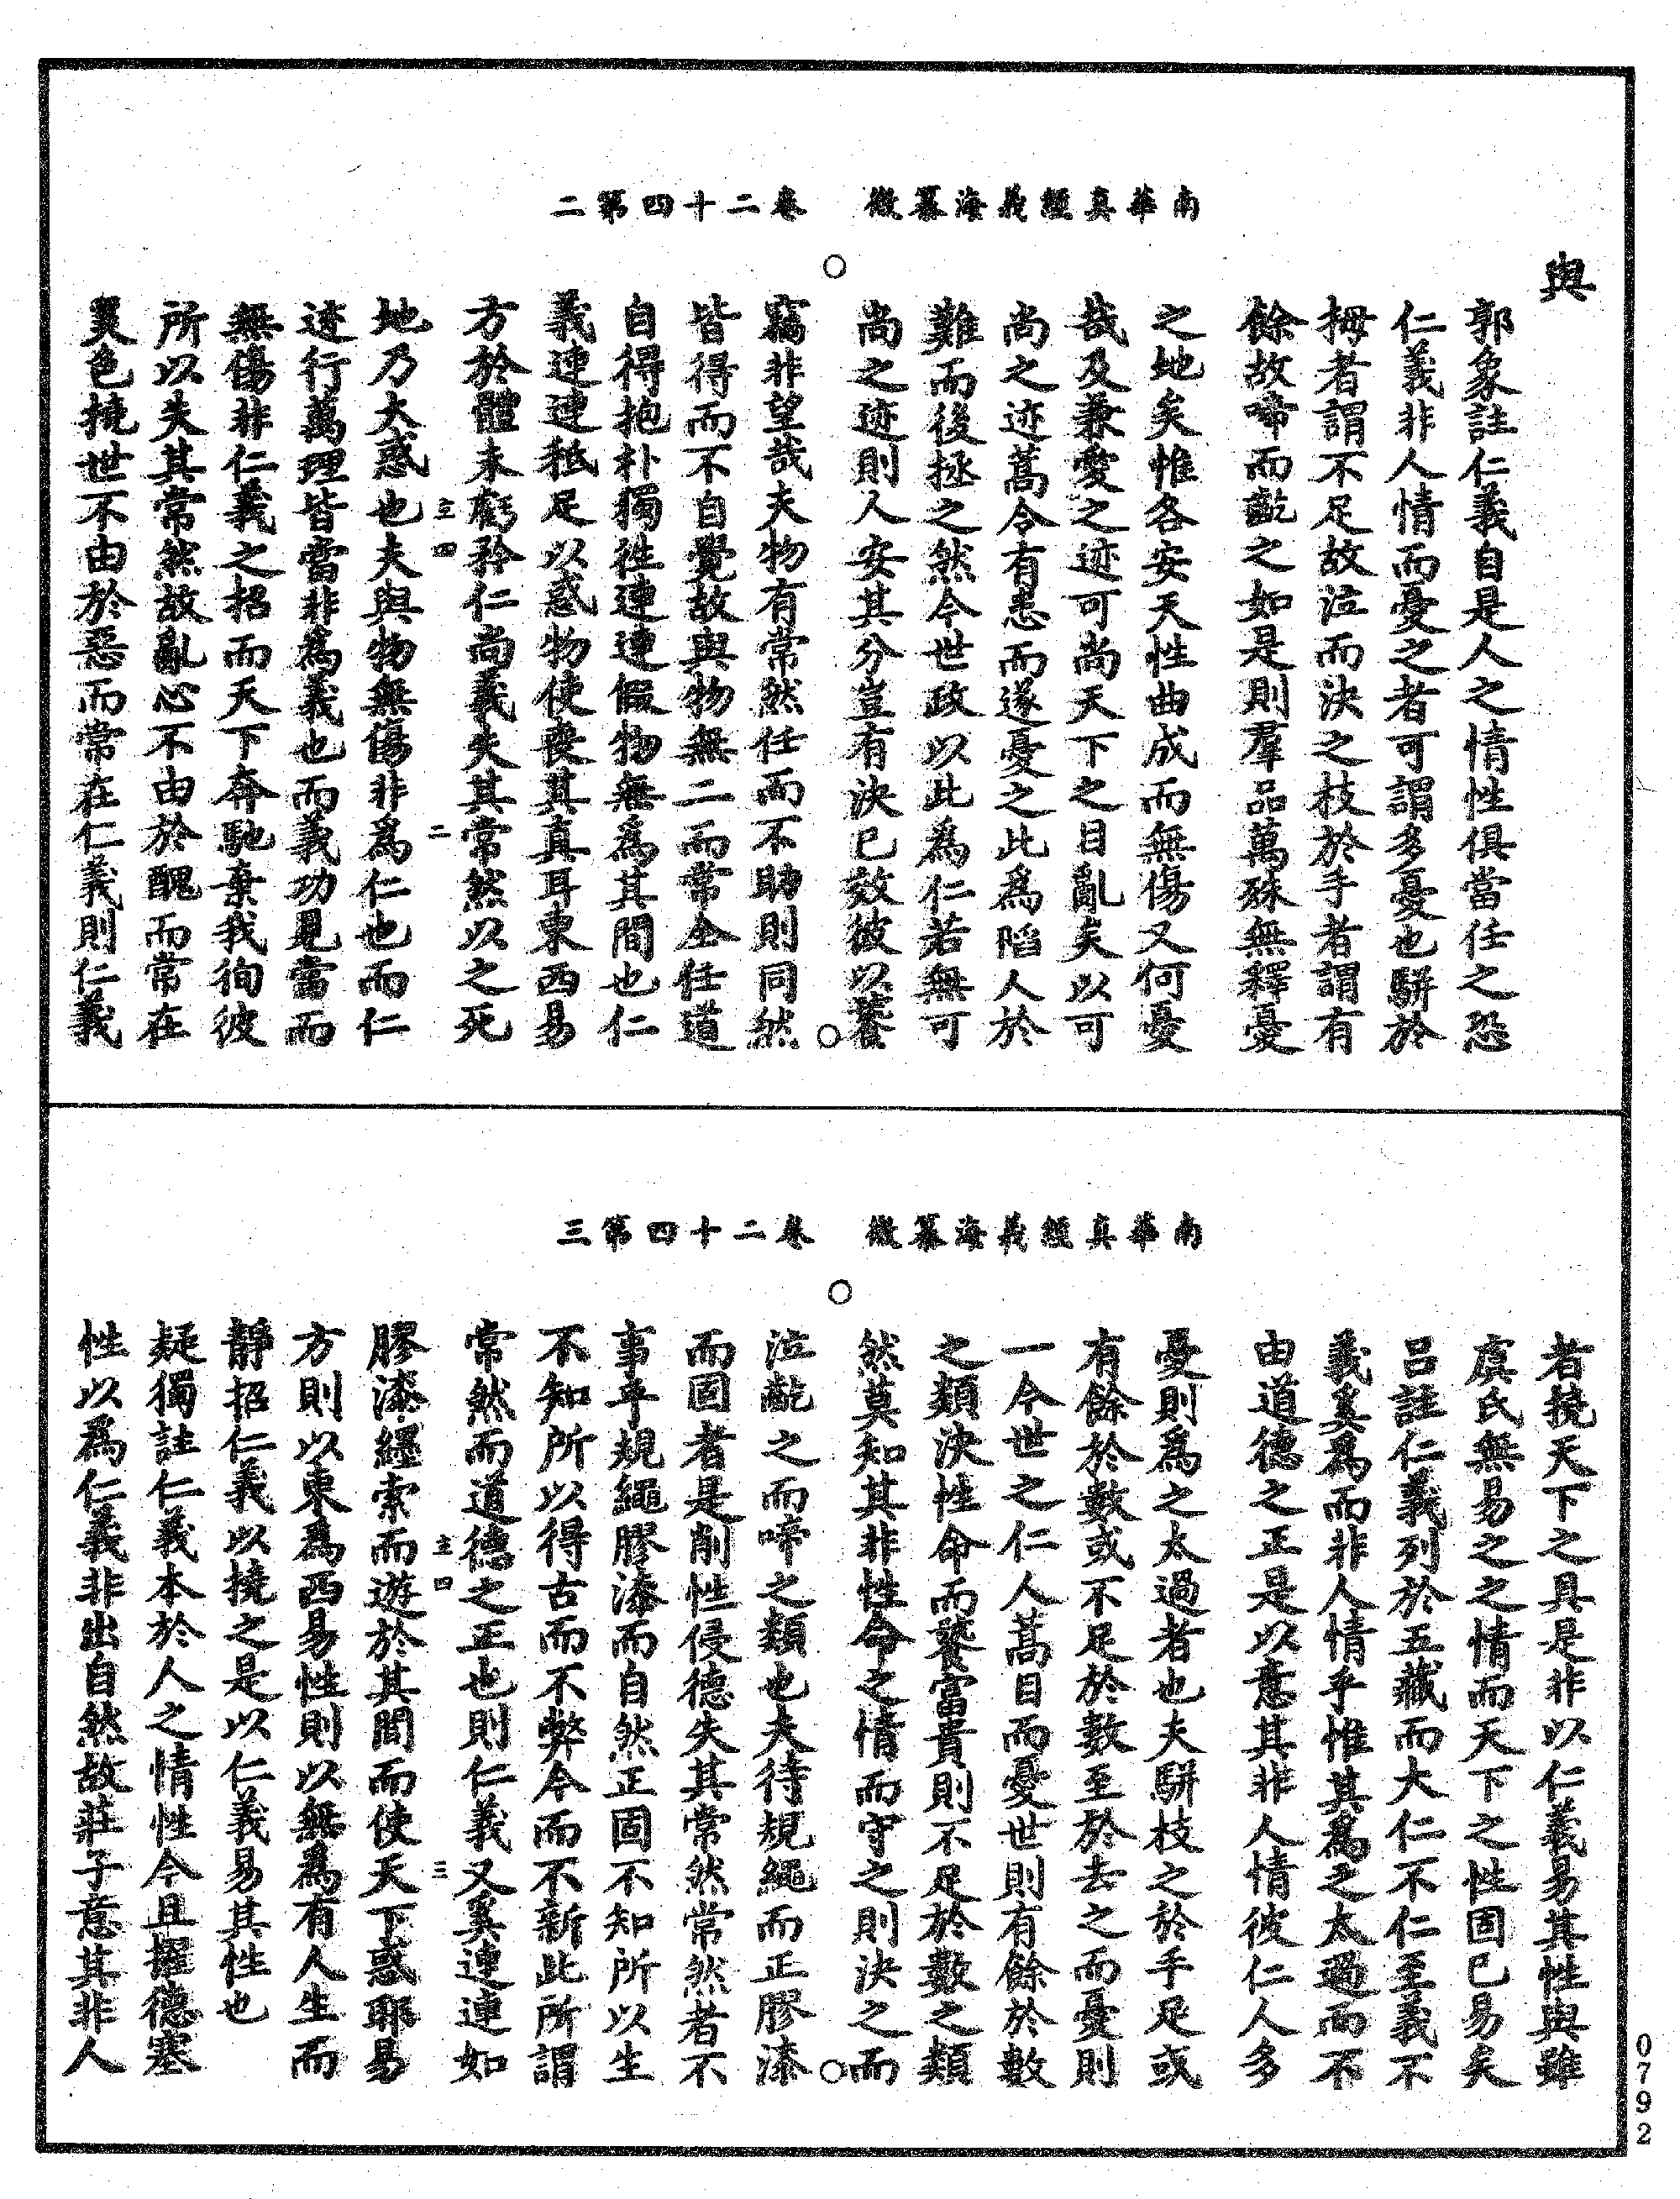 南華真經義海纂微　卷二十四第二
與
郭象註仁義自是人之情性俱當任之恐
仁義非人情而憂之者可謂多憂也駢於
拇者謂不足故泣而決之枝於手者謂有
餘故啼而齕之如是則羣品萬殊無釋憂
之地矣惟各安天性曲成而無傷又何憂
哉及兼愛之迹可尚天下之目亂矣以可
尚之迹蒿令有患而遂憂之此為陷人於
難而後拯之然今世政以此為仁若無可
尚之迹則人安其分豈有決已效彼以饕
竊非望哉夫物有常然任而不助則同然
皆得而不自覺故與物無二而常全任道
自得抱朴獨往連連假物無為其間也仁
義連連秪足以惑物使喪其真耳東西易
方於體未虧矜仁尚義失其常然以之死
地乃大惑也夫與物無傷非為仁也而仁
迹行萬理皆當非為義也而義功見當而
無傷非仁義之招而天下奔馳棄我徇彼
所以失其常然故亂心不由於醜而常在
美色撓世不由於惡而常在仁義則仁義
主四
二
南華真經義海纂微　卷二十四第三
者撓天下之具是非以仁義易其性與雖
虞氏無易之之情而天下之性固已易矣
呂註仁義列於五藏而大仁不仁至義不
義奚為而非人情乎惟其為之太過而不
由道德之正是以意其非人情彼仁人多
憂則為之太過者也夫駢枝之於手足或
有餘於數或不足於數至於去之而憂則
一今世之仁人蒿目而憂世則有餘於數
之類決性命而饕富貴則不足於數之類
然莫知其非性命之情而守之則決之而
泣齕之而啼之類也夫待規繩而正膠漆
而固者是削性侵德失其常然常然者不
事乎規繩膠漆而自然正固不知所以生
不知所以得古而不弊今而不新此所謂
常然而道德之正也則仁義又奚連連如
膠漆纆索而遊於其間而使天下惑耶易
方則以東為西易性則以無為有人生而
靜招仁義以撓之是以仁義易其性也
疑獨註仁義本於人之情性今且擢德塞
性以為仁義非出自然故莊子意其非人
主四
三
0792